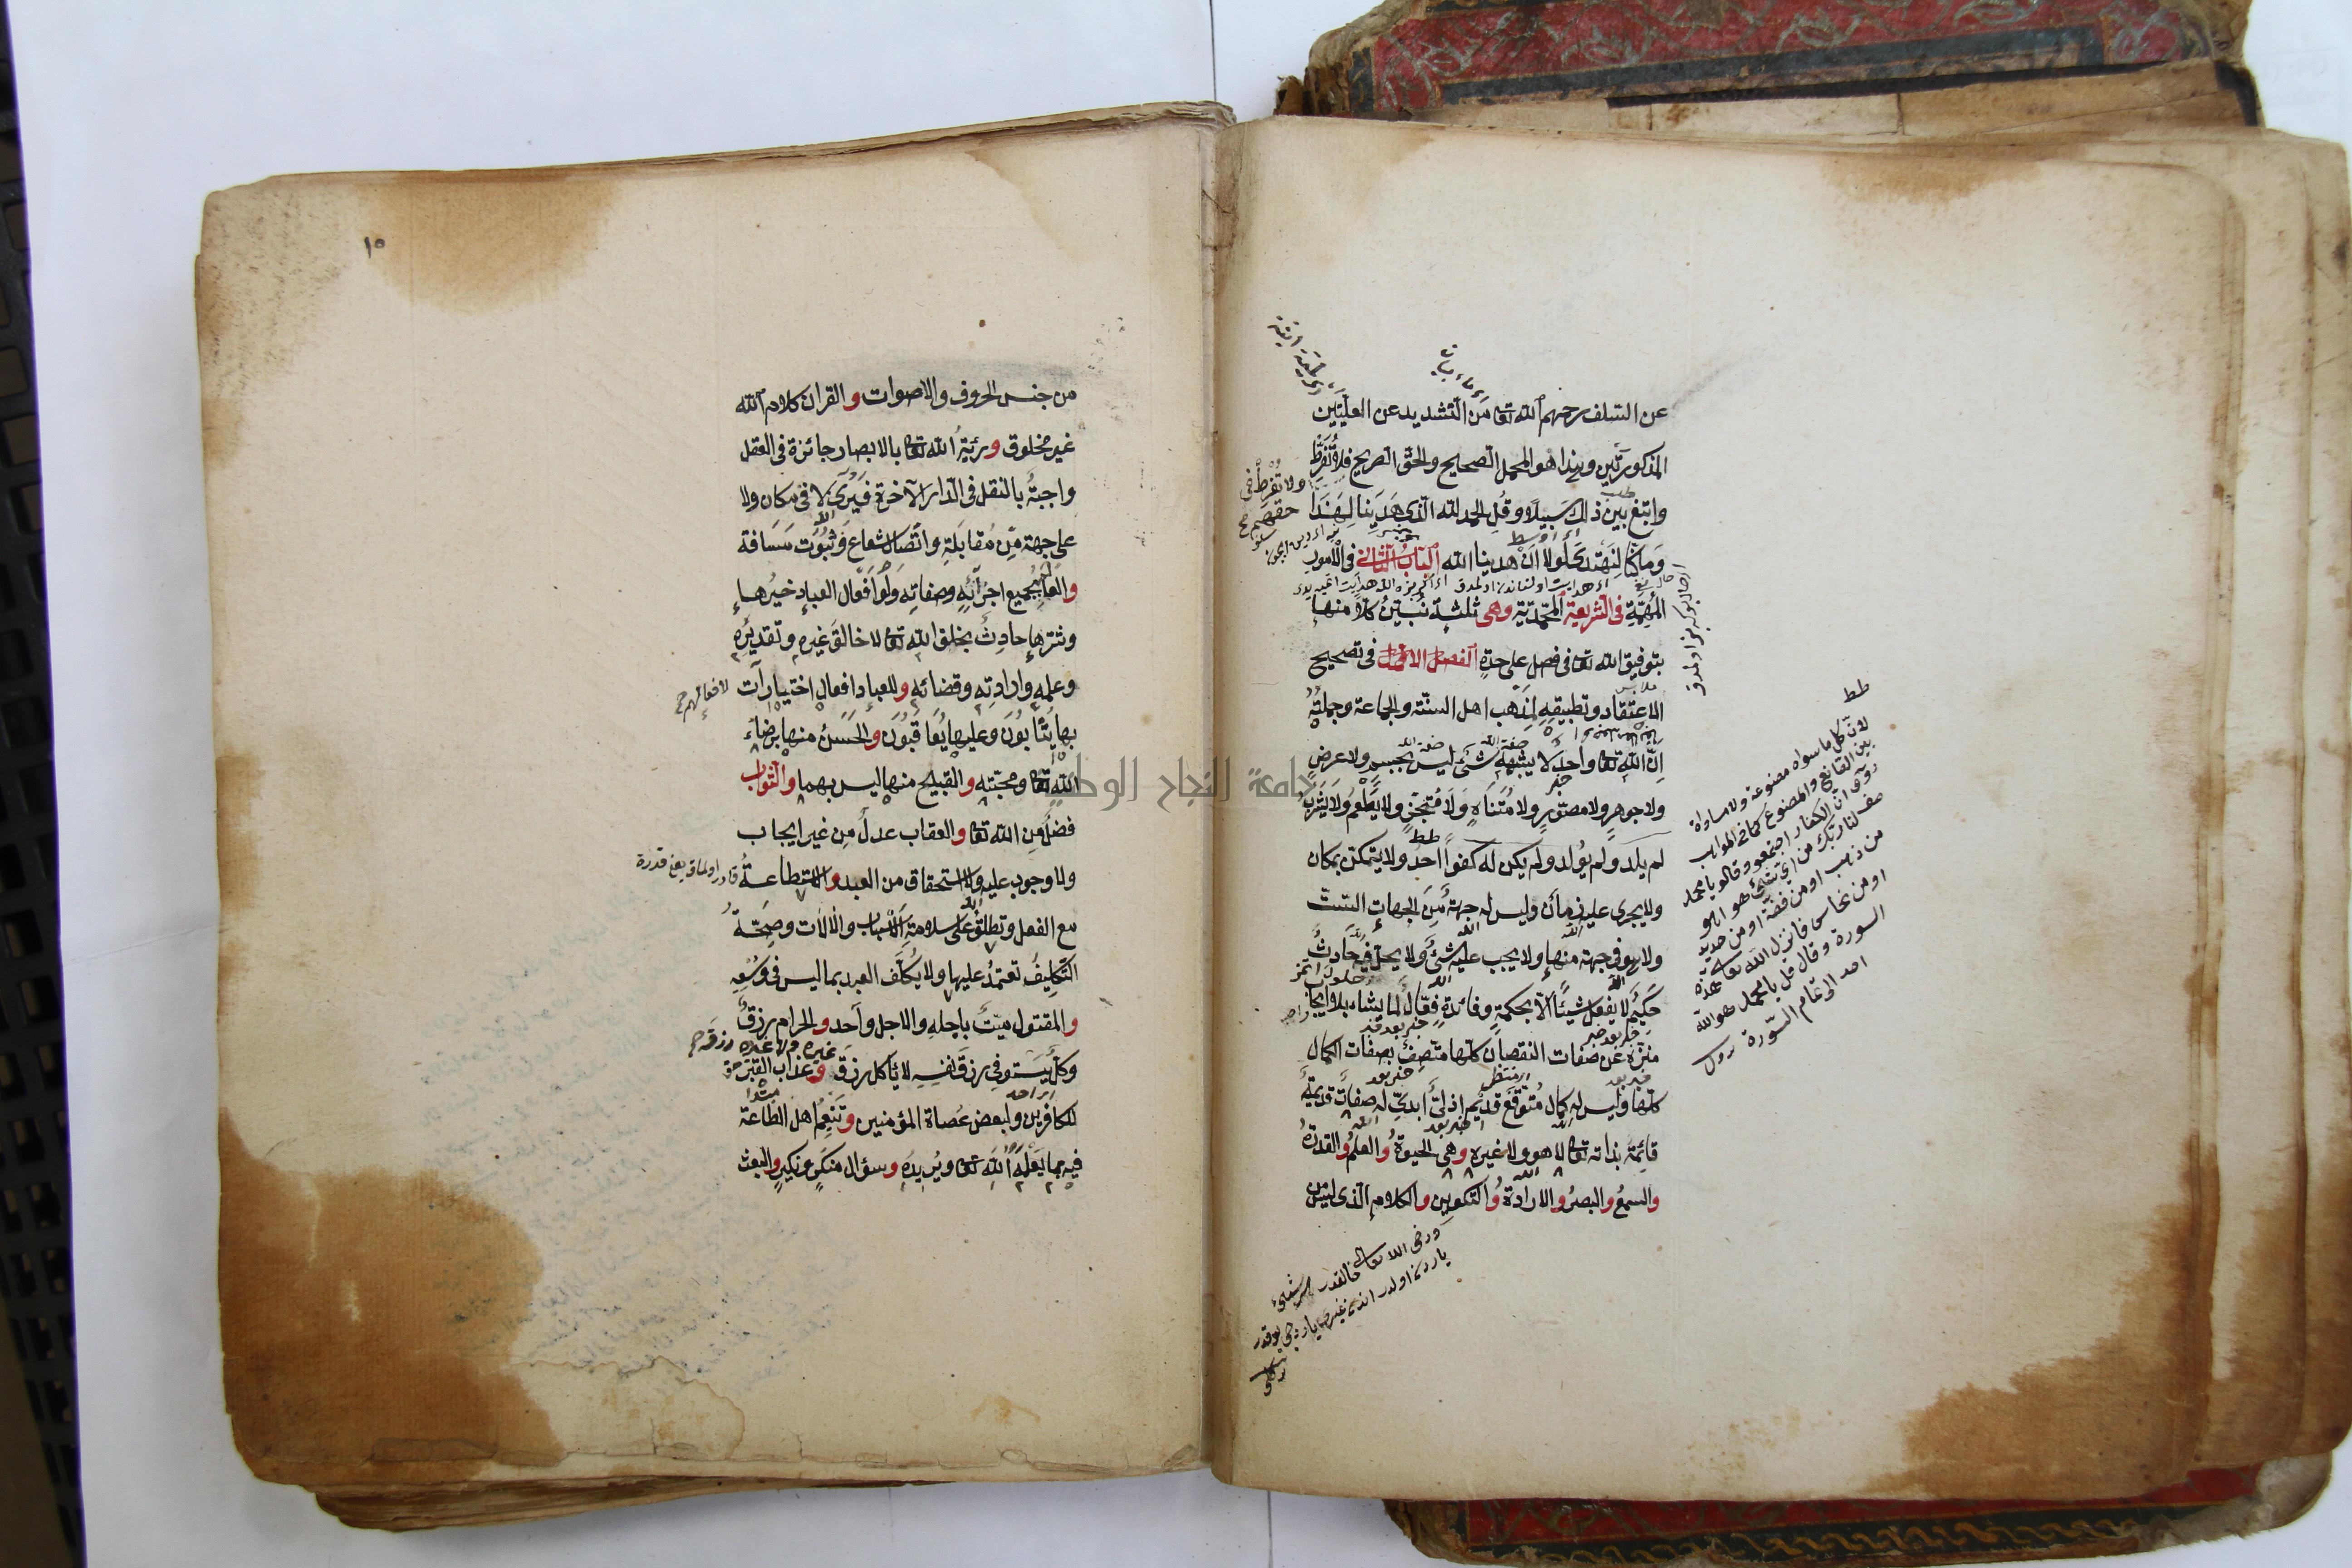 عن السلف رحمهم الله تعا من التشديد عن العليين
المذكورتين وهذا هو المحمل الصحيح والحق الصريح فلا تفرط
ولا تفرط في
حقهم صح
وابتغ بين ذلك سبيلا وقل الحمد لله الذي هدينا لهذا
وما كنا لنهتدي لولا ان هدينا الله الباب الثاني في الامور
المهمة في الشريعة المحمدية وهي ثلثة نبين كلا منها
بتوفيق الله تعا في فصل علي حدة الفصل الاول في تصحيح
الاعتقاد وتطبيقه لمذهب اهل السنة والجماعة وجملته
ان الله تعا واحد لا يشبهه شئ ليس بجسم ولا عرض
ولا جوهر ولا مصور ولا متناه ولا متجز ولا يطعم ولا يشرب
لم يلد ولم يولد ولم يكن له كفوا احد ولا يتمكن بمكان
ولا يجرى عليه زمان وليس له جهة من الجهات الست
ولا هو في جهة منها ولا يجب عليه شئ ولا يحل فيه حادث
حكيم لا يفعل شيئا الا بحكمة وفائدة فعال لما يشاء بلا ايجاب
منزه عن صفات النقصان كلها متصف بصفات الكمال
كلها وليس له كمال متوقع قديم ازلي ابدي له صفات قديمة
قائمة بذاته تعا لا هو ولا غيره وهي الحيوة والعلم والقدرة
والسمع والبصر والارادة والتكوين والكلام الذي ليس من
طط
لان كل ما سواه مصنوعة ولا مساواة
بين الصانع والمصنوع كما في المواهب
روى ان الكفار اجتمعوا وقالو يا محمد
صف لنا ربك من اي شئ هو اهو
من ذهب او من فضة او من حديد
او من نحاس فانزل الله تعالى هذه
السورة وقال قل يا محمد هو الله
احد الى تمام السورة
١٥
من جنس الحروف والاصوات والقران كلام الله
غير مخلوق ورئية الله تعا بالابصار جائزة في العقل
واجبة بالنقل في الدار الآخرة فيرى لا في مكان ولا
على جهة من مقابلة واتصال شعاع وثبوت مسافة
والعالم بجميع اجزائه وصفاته ولو افعال العباد خيرها
وشرها حادث بخلق الله تعا لا خالق غيره وتقديره
وعلمه وارادته وقضائه وللعباد افعال اختيارات
لافعالهم صح
بها يثابون وعليها يعاقبون والحسن منها برضاء
الله تعا ومحبته والقبيح منها ليس بهما والثواب
فضل من الله تعا والعقاب عدل من غير ايجاب
ولا وجوب عليه ولا استحقاق من العبد والاستطاعة
مع الفعل وتطلق على سلامة الاسباب والآلات وصحة
التكليف تعتمد عليها ولا يكلف العبد بما ليس في وسعه
والمقتول ميت باجله والاجل واحد والحرام رزق
وكل يستوفي رزق نفسه لا يأكل رزق غيره ولا غيره رزقه صح وعذاب القبر حق
للكافرين ولبعض عصاة المؤمنين وتنعم اهل الطاعة
فيه بما يعلمه الله تعا ويريده وسؤال منكر ونكير والبعث
جامعة النجاح الوطنية